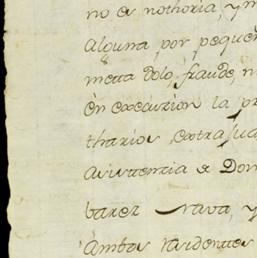 no es nothoria, y m
alguna por pequeñ
meta dolo, fraude, n
en execucion la pr
tharios extraju
asistencia e Don
barez Nava, y
ambos residentes